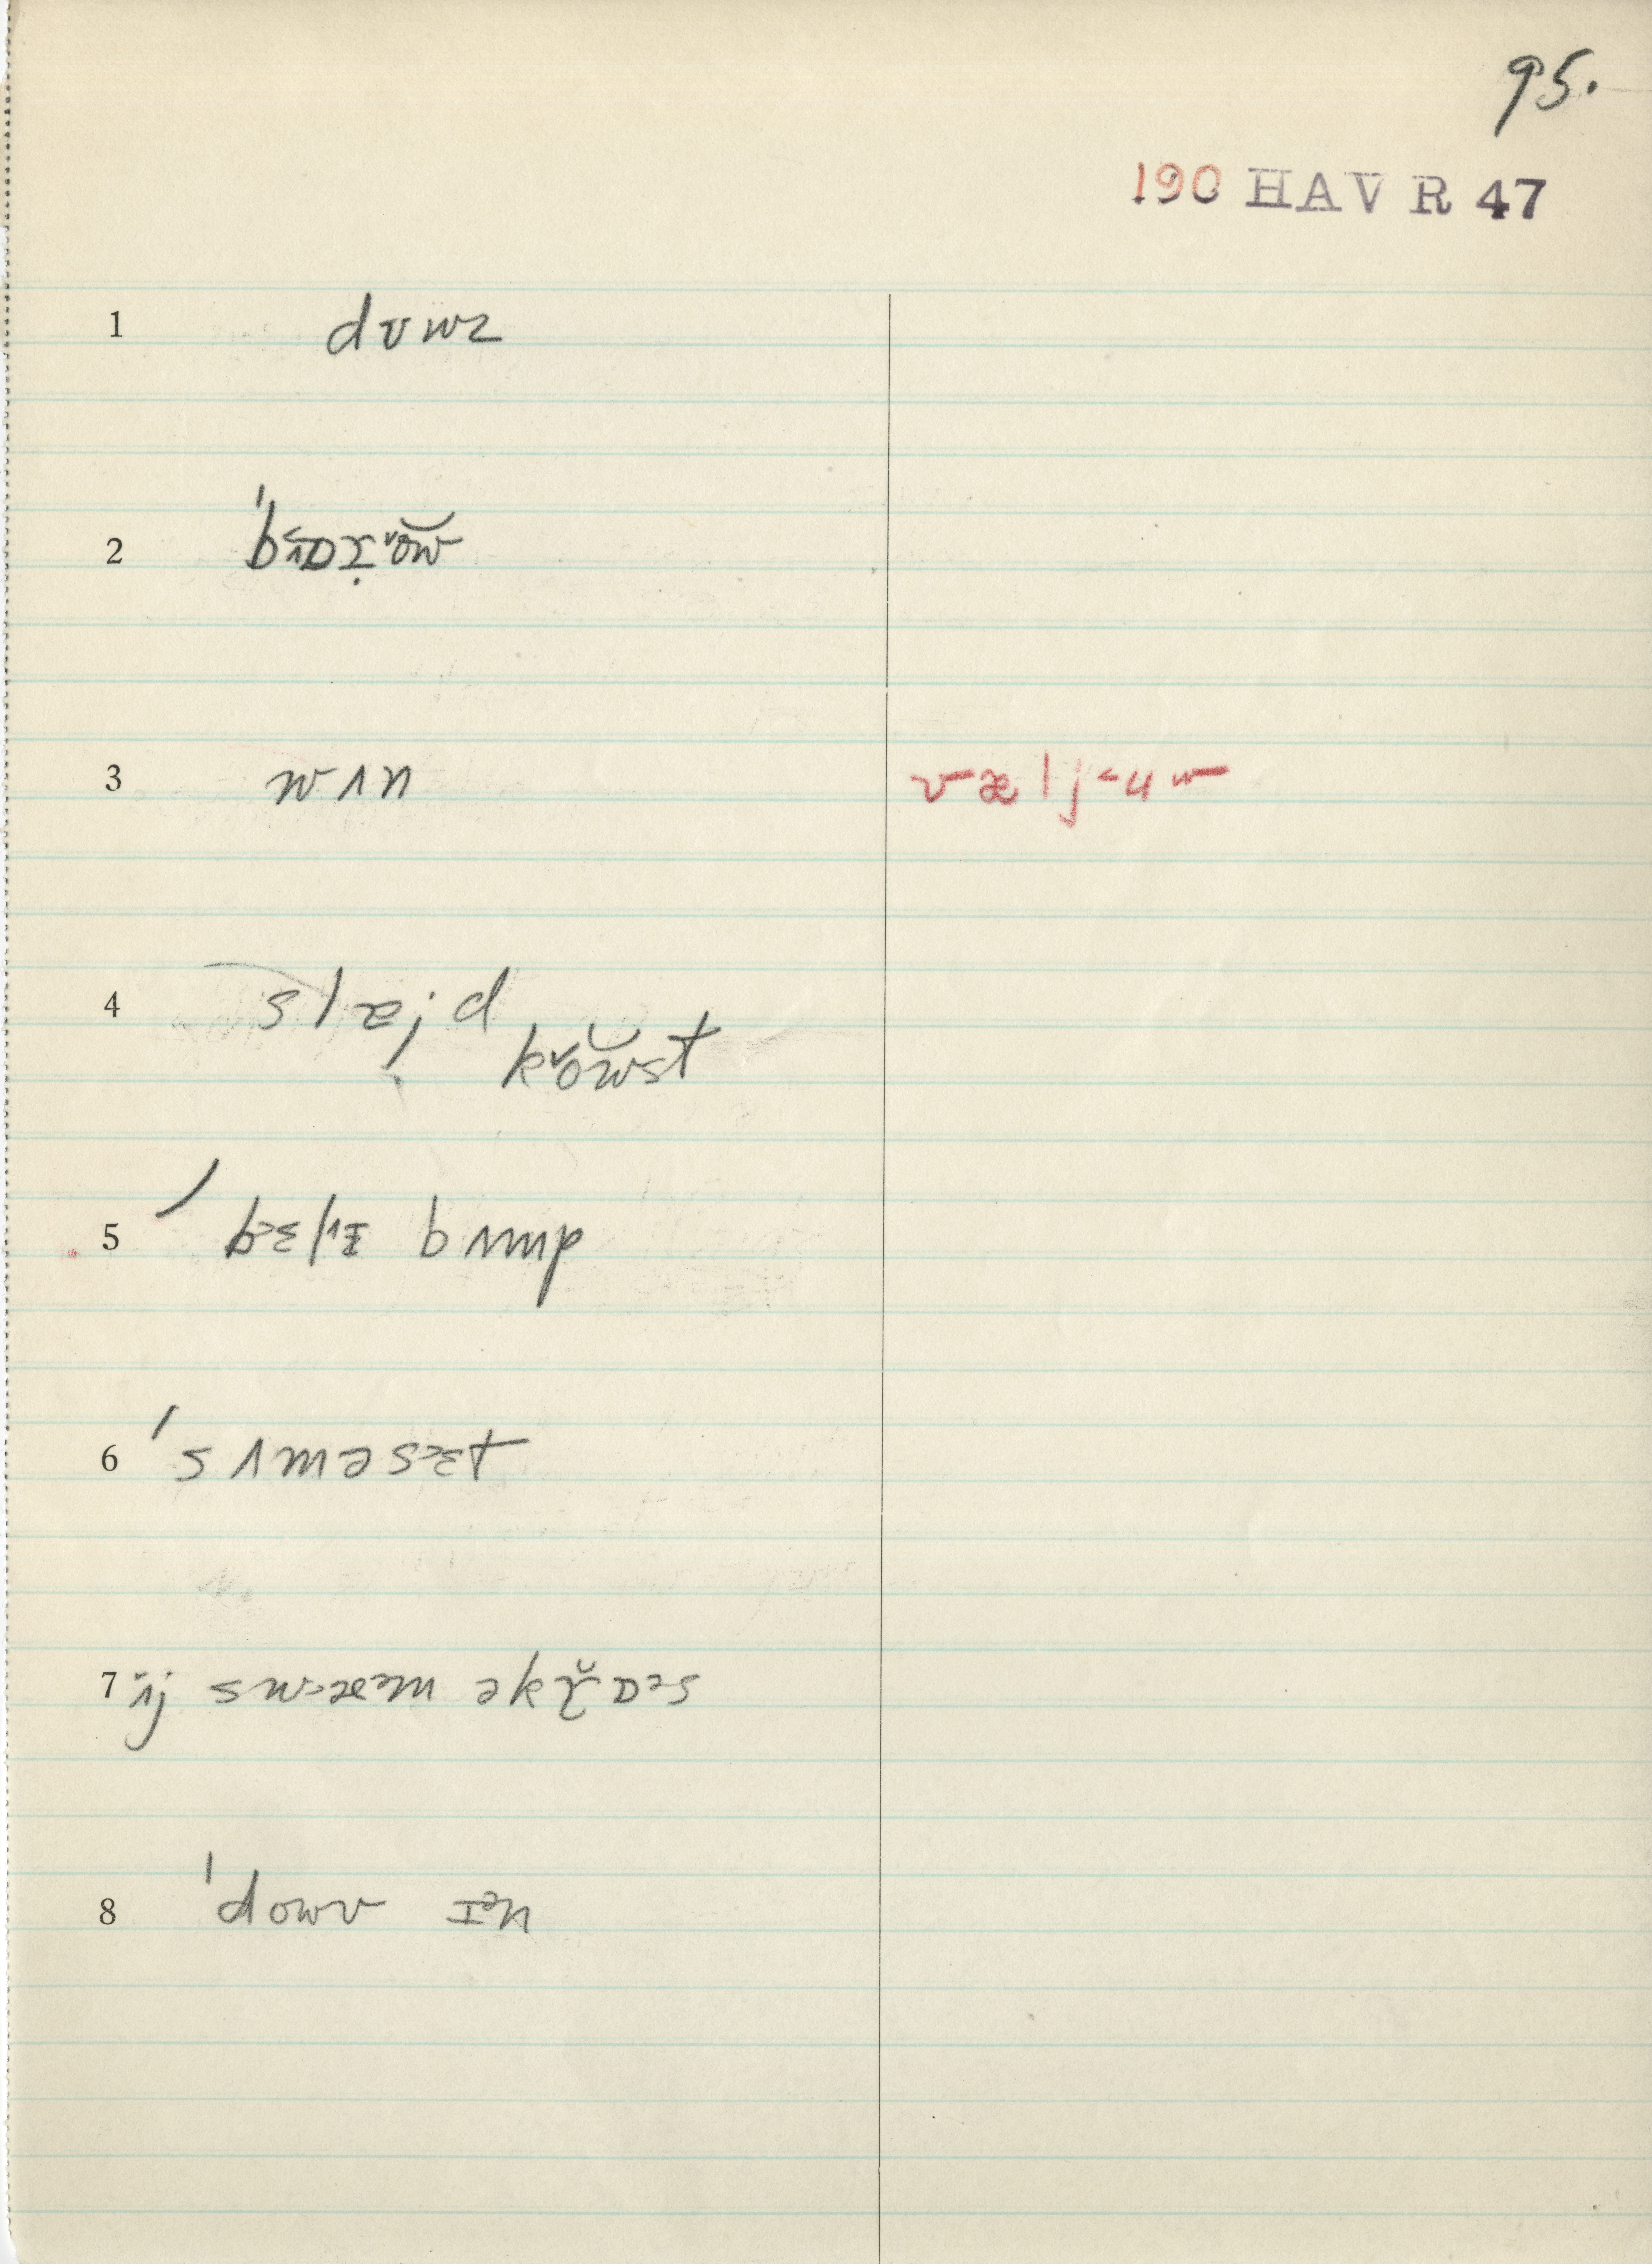 95.
190 HAVR 47
1 dʊwz
3 wʌn væljᵿw
4 slæjd
kɤ̆ŏw̆st
5 ˈbɛlɪ bʌmp
6 ˈsʌməsɛt
7 ɪj swæm əkɤ̆ɒs
8 ˈdowv ɪᵊn